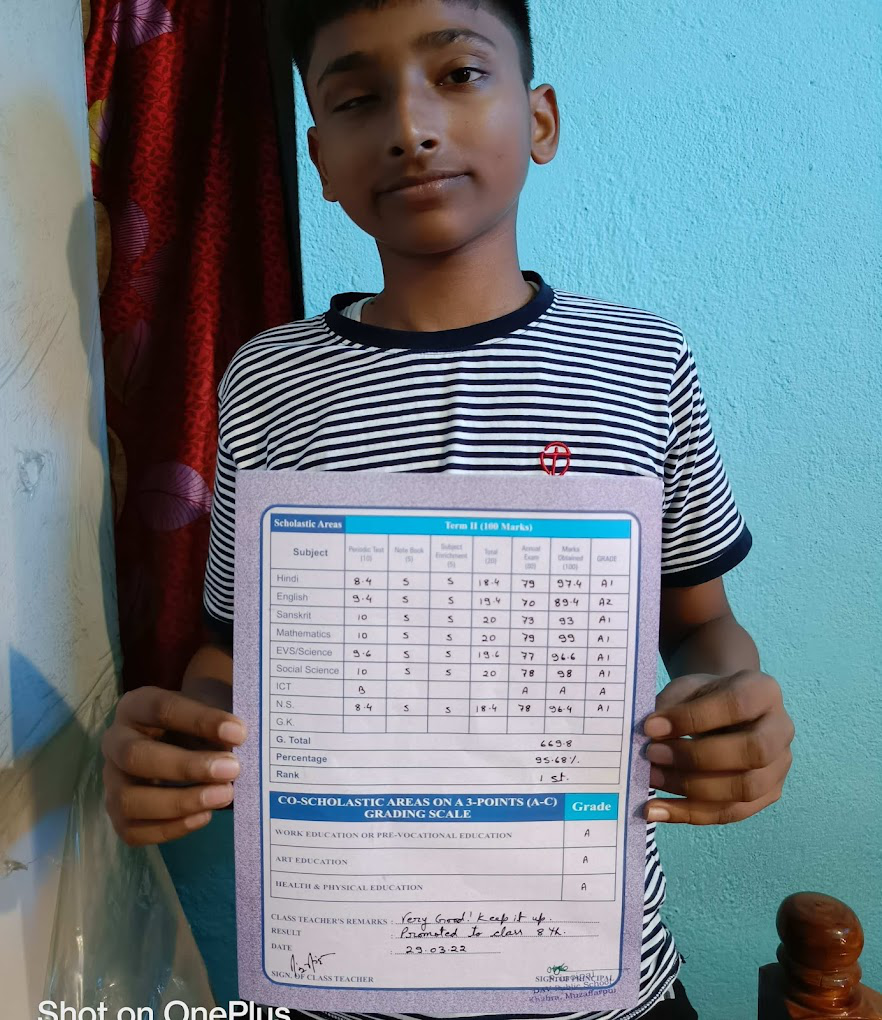 Scholastic Areas Term II (100 Marks)
Subject Periodic Test (10) Note Book (5) Subject Enrichment (5) Total (20) Annual Exam (80) Marks Obtained (100) GRADE
Hindi 8.4 5 5 18.4 79 97.4 A1
English 9.4 5 5 19.4 70 89.4 A2
Sanskrit 10 5 5 20 73 93 A1
Mathematics 10 5 5 20 79 99 A1
EVS/Science 9.6 5 5 19.6 77 96.6 A1
Social Science 10 5 5 20 78 98 A1
ICT B A A A
N.S. 8.4 5 5 18.4 78 96.4 A1
G.K.
G. Total 669.8
Percentage 95.68%.
Rank 1st.
CO-SCHOLASTIC AREAS ON A 3-POINTS (A-C) GRADING SCALE Grade
WORK EDUCATION OR PRE-VOCATIONAL EDUCATION A
ART EDUCATION A
HEALTH & PHYSICAL EDUCATION A
CLASS TEACHER'S REMARKS : Very Good! Keep it up.
RESULT : Promoted to class 8th.
DATE : 29.03.22
SIGN. OF CLASS TEACHER SIGN OF PRINCIPAL
Principal
DAV Public School
Khabra, Muzaffarpur
Shot on OnePlus